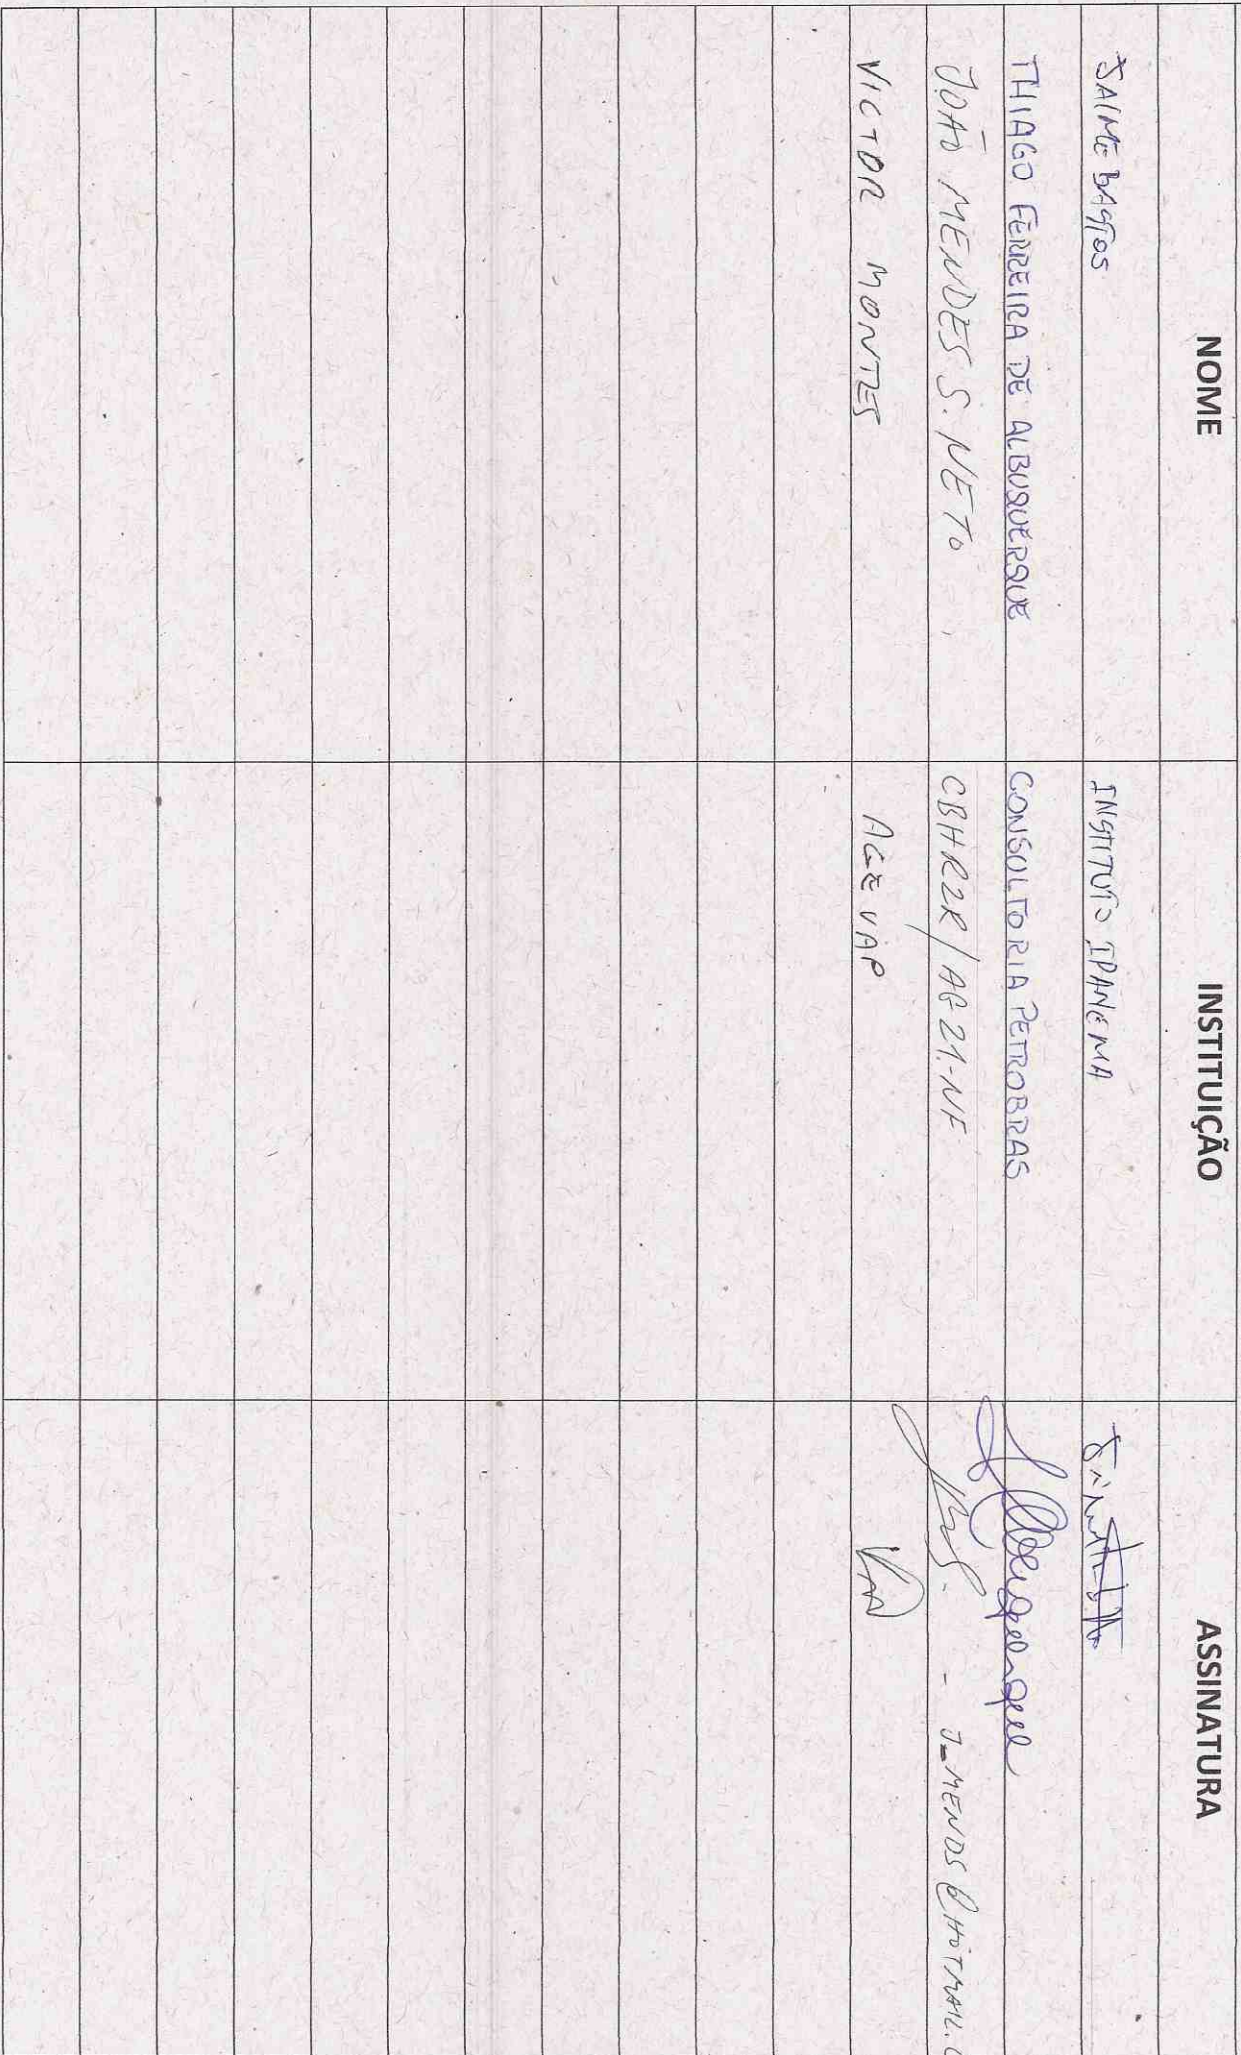 NOME INSTITUIÇÃO ASSINATURA
JAIME BASTOS INSTITUTO IPANEMA
THIAGO FERREIRA DE ALBUQUERQUE CONSULTORIA PETROBRAS Albuquerque
JOÃO MENDES S. NETO CBHR2R/AG21-NF - J_MENDS@HOTMAIL.C
VICTOR MONTES AGEVAP